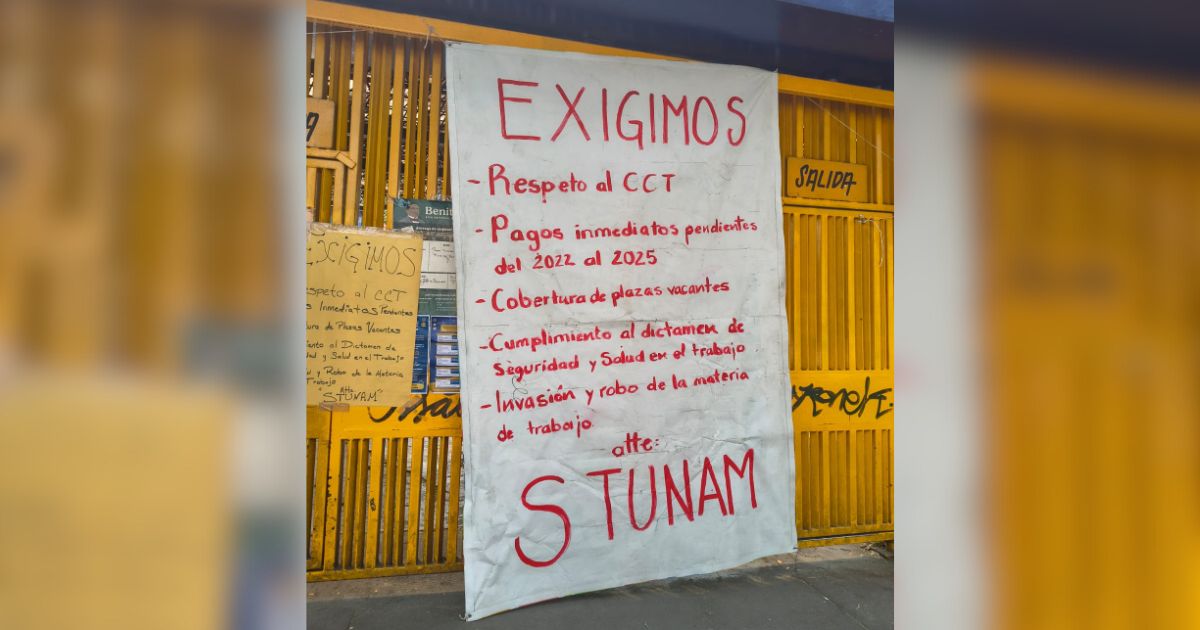 EXIGIMOS
- Respeto al CCT
- Pagos inmediatos pendientes
del 2022 al 2025
- Cobertura de plazas vacantes
- Cumplimiento al dictamen de
seguridad y Salud en el trabajo
- Invasión y robo de la materia
de trabajo
atte:
STUNAM
SALIDA
Benit
EXIGIMOS
speto al CCT
s Inmediatos Pendientes
ura de Plazas Vacantes
iento al Dictamen de
dad y Salud en el Trabajo
y Robo de la Materia
Trabajo
Atte
"STUNAM"